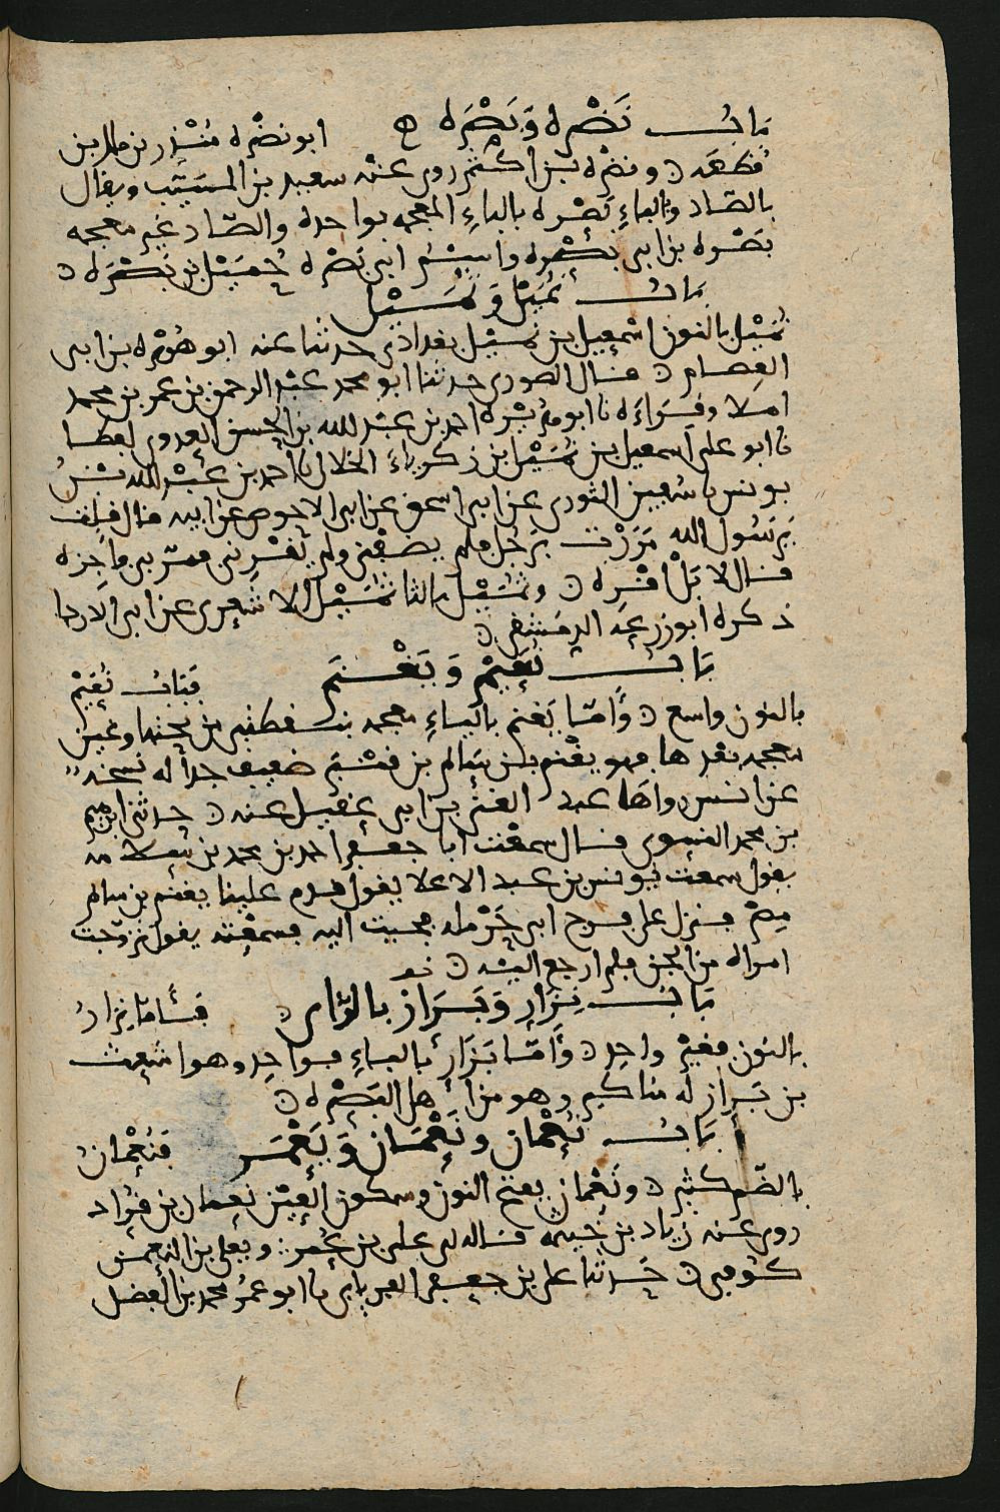 باب نَضْرة وَبَصْرَة ابو نضْرة مُنْذر بن ملك بن
قطعَه ونضْرة بن اكثم روى عنْه سعيد بن المسيّب ويقال
بالصّاد وبالباءِ بَصْرة بالباءِ المعجمه بواحدة والصّاد غير معجمه
بَصْرة بن ابى بَصْرة واسْمُ ابى بَصْرة حُمَيْل بن بَصْرَة
باب نُمَيْل وَثُمَيْل
نُمَيْل بالنون اسْمعيل بن نُمَيْل بغدادى حدثنا عنه ابو هُرَيْرة بن ابى
العِصام قال الصورى حدثنا ابو محمد عبْد الرحمن بن عمر بن محمد
املا وقرَاءَة نا ابو هُرَيْرة احمد بن عبْد الله بن الحسن العدوى لفظا
نا ابو على اسمعيل بن نُمَيْل بن زكرياءَ الخلال نا احمد بن عبْد الله بنُ
يونس نا سُفين الثورى عن ابى اسحق عن ابى الاحوص عن ابيه قال قلت
يَرَسُول الله مَرَرْت بِرَجُل فلم يضفْنى ولم يَقْرنى فمرّ بى فاجزه
قال لا بَلْ اقْره وثُمَيْل بالثا ثُمَيْل الاشعرى عن ابى الدردا
ذكره ابو زرعَه الدِمَشقى
باب نُعَيْم وَ يَغْنَم فَبَاب نُعَيْم
بالنون واسع وَأمّا يَغنم بالياءِ معجمه بنقطتين من تحتها وغين
معجمه بعدها فهو يغْنم بن سَالم بن قنْبَر ضعيف جداً له نسْخة
عن انس رواها عبد الغنى بن ابى عقيل عنه حدثنى ابرهيم
بن محمد النسوى قال سمعْت ابا جعفر احمد بن محمد بن سَلامه
يقول سمعت يونس بن عبد الاعلا يقول قدم علينا يغنم بن سالم
مصْر فنزل على فرج ابى حَرْملة فجيت اليه فسمعْته يقول تزوّجت
امراة من الجن فلم ارجع اليْه
باب نِزَار وَبَرَاز بالزاى فَأَمّا نِزارُ
بالنون فغير واحِد وَأمّا بَرَاز بالباءِ فواحِد وهو اشعث
بن بَراز له مناكير وهو من أهل البَصْرة
باب نُعْمان ونَعْمَان وَ يَعْمَر فَنُعْمانُ
بالضّم كثير ونَعْمان بفتح النون وسكون العيْن نعمان بن قُرَاد
روى عنه زياد بن خيثمه قاله لى على بن عُمر ويعلى بن النعمن
كُوفى حَدثنا على بن جعفر الفريابى نا ابو عمرُ محمد بن الفضل